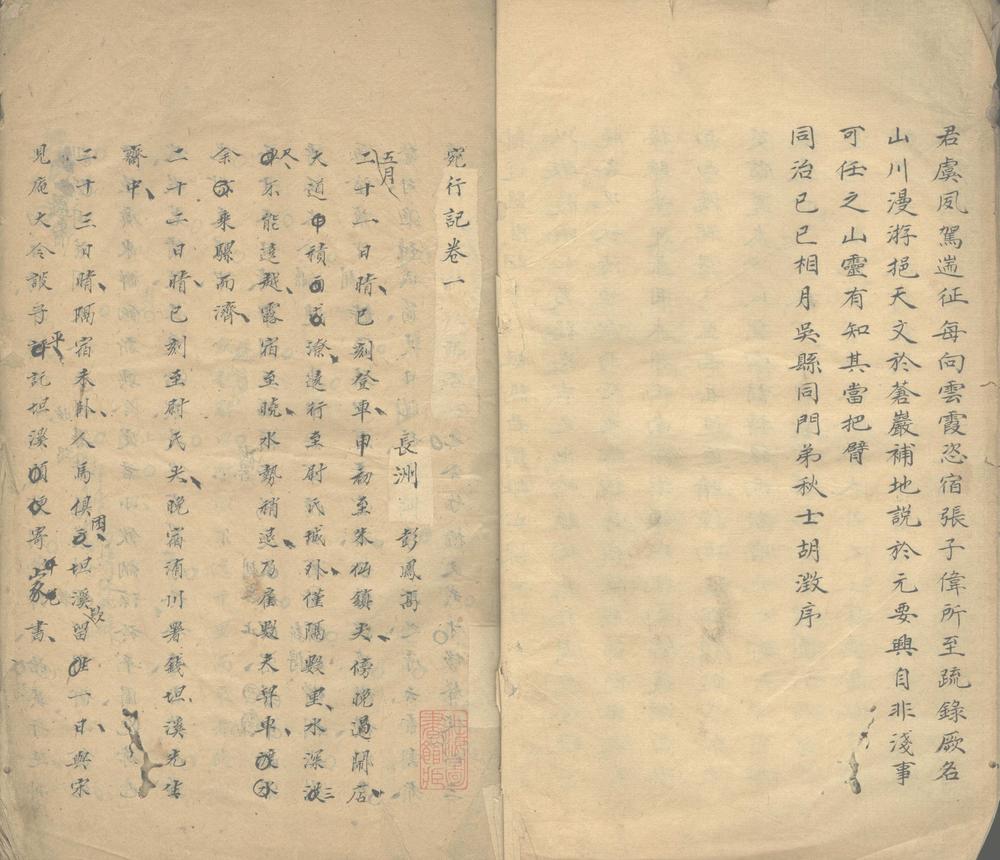 君虞夙駕遄征每向雲霞恣宿張子偉所至疏錄厥名
山川漫游挹天文於蒼巖補地説於元要興自非淺事
可任之山靈有知其當把臂
同治己巳相月吳縣同門弟秋士胡澂序
宛行記卷一
長洲 彭鳳高
五月
二十一日晴已刻登車申初至朱仙鎮尖傍晚過閘店
大道中積雨成潦遶行至尉氏城外僅隔數里水深
尺
不能遠越露宿至曉水勢稍退乃雇數夫舁車渡水
余乘騾而濟
二十二日晴已刻至尉氏尖晚宿洧川署錢坦溪先生
齋中
二十三日晴隔宿未卧人馬俱困坦溪留一日與宋
見庵大令談手評記坦溪順便寄家書